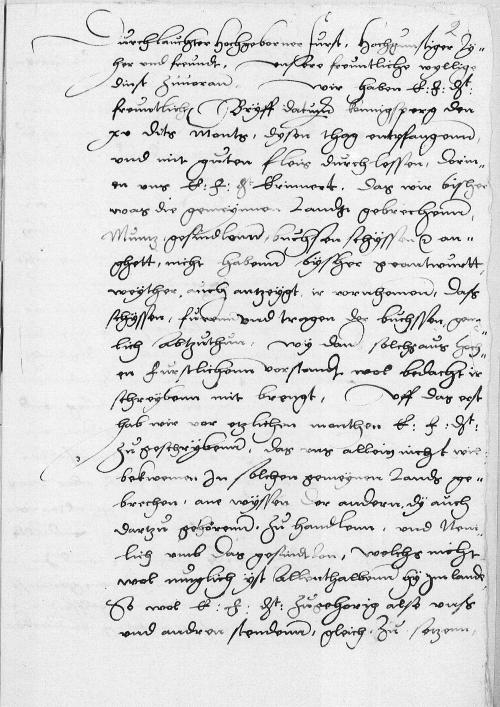 2
Durchlauchter Hochgeborner furst, Hochgunstiger Zy-
her und freunde, unssere freuntliche wyllige
dinst zuvoran, wir haben E: f: dt:
freuntlichs Bryff datum Konnigsperg den
xv dits Monts, dysen thag entpfangenn,
und mit guten fleis durchlessen, dorin-
en uns E: f: dt: Erinnert, das wir bisher
was die gemeynen Landt gebrechenn,
Muntz, gesindlenn, buchsen schyssen an-
ghett, nicht habenn bysher geantwurtt,
weyther auch antzeygt ir vornhemen, dass
schyssen, furen und tragen der buchssen gentz-
lich abtzuthun, wy dan solchs aus hoch-
en furstlichenn vorstandt wol bedacht ir
schreybenn mit brengt, Uff das erst
hab wir vor etzlichen monthen E: f: dt:
zugeschrybenn, das uns allein nicht wil
bekwemen In solchen gemeynen Lands ge-
brechen, ane wyssen der andern, dy auch
dartzu gehorenn, zu handlenn, und Nem-
lich umb das gesindlen, welchs nicht
wol muglich yst allenthalbenn hy Im lande
So wol E: f: dt: zugehorig alse unss
und andren stendenn, gleich zu setzenn,